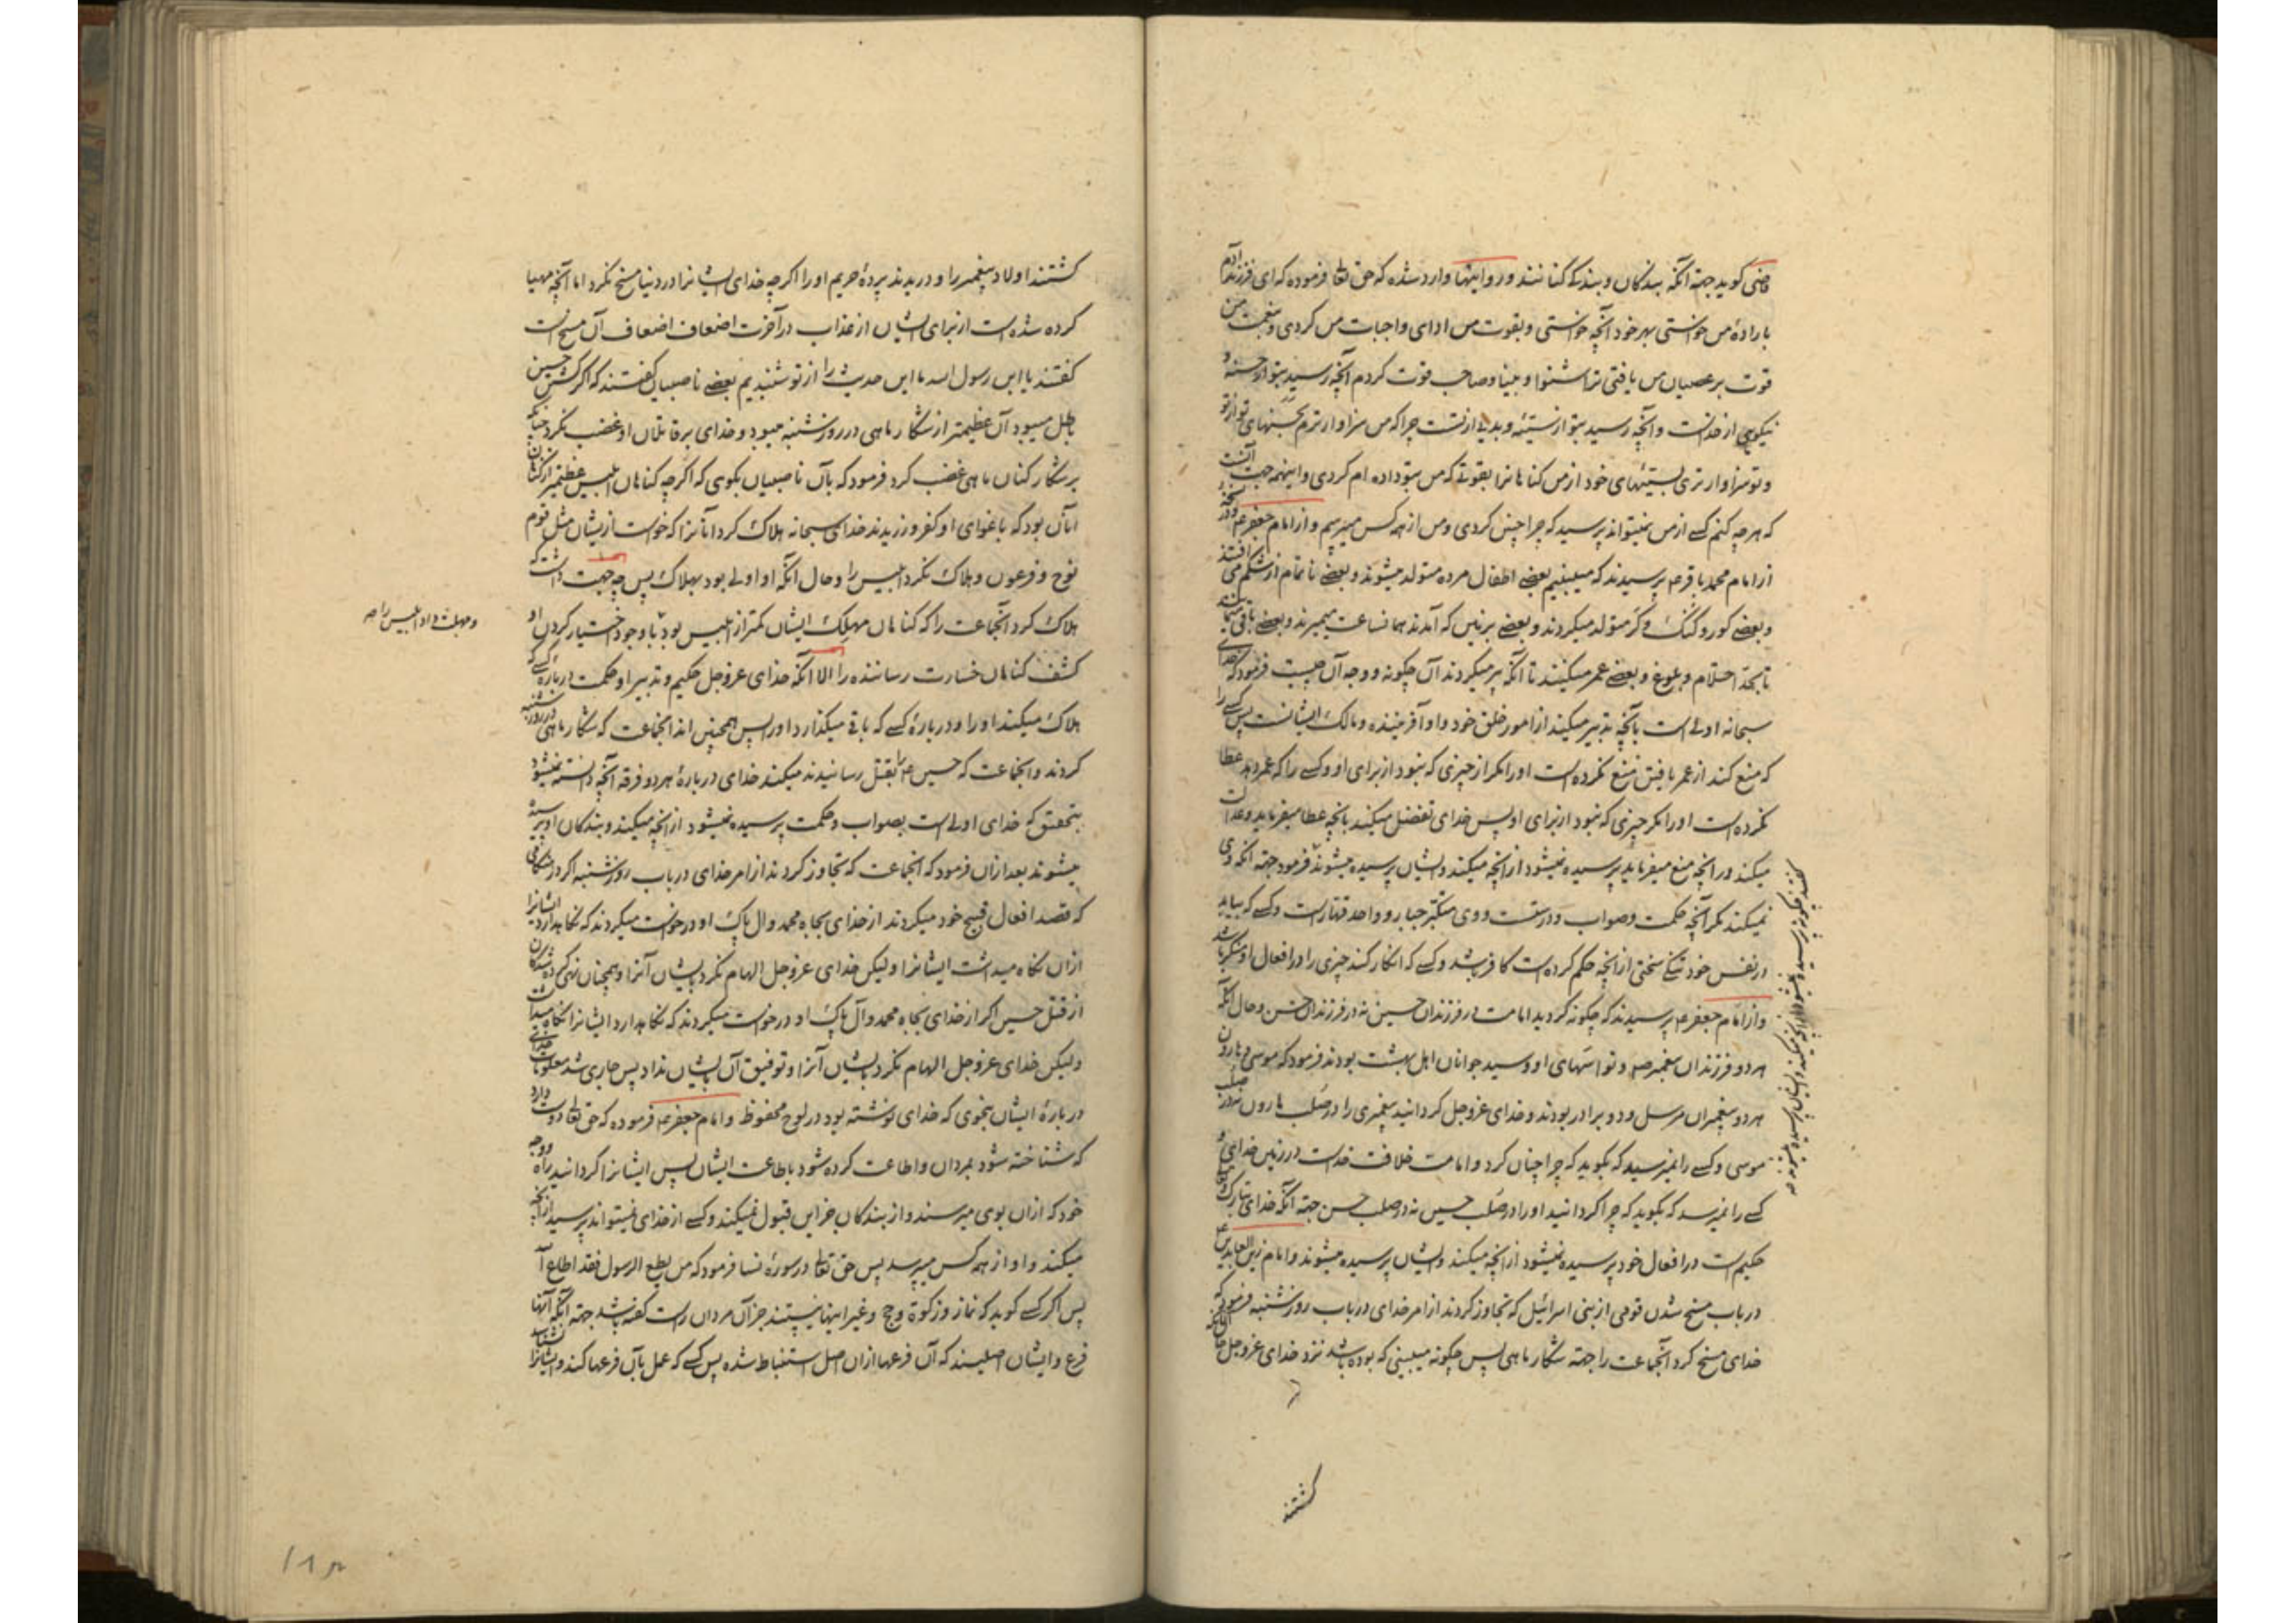 قاضی کوید جهته آنکه بندکان و بندکی کنانند و در روایتها وارد شده که حق تعالی فرموده که ای فرزند آدم
بارادهٔ من خواستی بهر خود آنچه خواستی و بقوت من ادای واجبات من کردی و بنعمت من
قوت بر عصیان من یافتی ترا شنوا و بینا و صاحب قوت کردم آنچه رسید بتو از حسنه و
نیکویی از خداست و آنچه رسید بتو از سیئه و بدی از تست چرا که من سزاوارترم بحسنهای تو از تو
و تو سزاوارتری بسیئهای خود از من کناهانرا بقوتی که من بتو داده ام کردی و اینهمه جهت آنست
که هر چه کنم کسی از من نمیتواند پرسید که چرا چنین کردی و من از همه کس میپرسم و از امام جعفر ع
از امام محمد باقر ع پرسیدند که میبینیم بعضی اطفال مرده متولد میشوند و بعضی ناتمام از شکم می افتند
و بعضی کور و کنک و کر متولد میکردند و بعضی بزمین که آمدند همانساعت میمیرند و بعضی باقی میمانند
تا بحد احتلام و بلوغ و بعضی عمر میکنند تا آنکه پیر میکردند آن چکونه و وجه آن چیست فرمود که خدای
سبحانه اولی است بآنچه تدبیر میکند از امور خلق خود و او آفریننده و مالک ایشانست پس کسی را
که منع کند از عمر یافتن منع نکرده است او را مکر از چیزی که نبود از برای او و کسی را که عمر دهد عطا
نکرده است او را مکر چیزی که نبود از برای او پس خدای تفضل میکند بآنچه عطا میفرماید و عدالت
میکند در آنچه منع میفرماید پرسیده نمیشود از آنچه میکند و ایشان پرسیده میشوند فرمود جهته آنکه وی
نمیکند مکر آنچه حکمت و صواب و درست و وی متکبر جبار و واحد قهار است و کسی که بیابد
در نفس خود تنکی سختی از آنچه حکم کرده است کافر باشد و کسی که انکار کند چیزی را در افعال او منکر باشد
و از امام جعفر ع پرسیدند که چکونه کردید امامت در فرزندان حسین نه در فرزندان حسن و حال آنکه
هر دو فرزندان پیغمبر ص و نواسهای او و سید جوانان اهل بهشت بودند فرمود که موسی و هارون
هر دو پیغمبران مرسل و دو برادر بودند و خدای عزوجل کردانید پیغمبری را در صلب هارون نه در صلب
موسی و کسی را نمیرسید که بکوید که چرا چنان کرد و امامت خلافت خداست در زمین خدای و
کسی را نمیرسد که بکوید که چرا کردانید او را در صلب حسین نه در صلب حسن جهته آنکه خدای تبارک و تعالی
حکیم است در افعال خود پرسیده نمیشود از آنچه میکند و ایشان پرسیده میشوند و امام زین العابدین ع
در باب مسخ شدن قومی از بنی اسرائیل که تجاوز کردند از امر خدای در باب روز شنبه فرمود که
خدای مسخ کرد آنجماعت را جهته شکار ماهی پس چکونه میبینی که بوده باشد نزد خدای عزوجل حال آنانکه
کشتند
کشتند اولاد پیغمبر را و دریدند پردهٔ حریم او را اکر چه خدای ایشانرا در دنیا مسخ نکرد اما آنچه مهیا
کرده شده است از برای ایشان از عذاب در آخرت اضعاف اضعاف آن مسخ است
کفتند یا ابن رسول الله ما این حدیث را از تو شنیدیم بعضی ناصبیان کفتند که اکر کشتن حسین
باطل میبود آن عظیمتر از شکار ماهی در روز شنبه میبود و خدای بر قاتلان او غضب نکرد چنانکه
بر شکار کنان ماهی غضب کرد فرمود که بآن ناصبیان بکوی که اکر چه کناهان ابلیس عظیمتر از کناهان
آنان بود که باغوای او کفر ورزیدند خدای سبحانه هلاک کرد آنانرا که خواست از ایشان مثل قوم
نوح و فرعون و هلاک نکرد ابلیس را و حال آنکه او اولی بود بهلاک پس چه جهت داشت که
هلاک کرد آنجماعت را که کناهان مهلک ایشان کمتر از ابلیس بود با وجود اختیار کردن او
و مهلت داد ابلیس را صه
کشف کناهان خسارت رساننده را الا آنکه خدای عزوجل حکیم و تدبیر او حکمت در بارهٔ کسی که
هلاک میکند او را و در بارهٔ کسی که باقی میکذارد او را پس همچنین اند آنجماعت که شکار ماهی در روز شنبه
کردند و آنجماعت که حسین ع را بقتل رسانیدند میکند خدای در بارهٔ هر دو فرقه آنچه دانسته میشود
بتحقیق که خدای اولی است بصواب و حکمت پرسیده نمیشود از آنچه میکند و بندکان او پرسیده
میشوند بعد از آن فرمود که آنجماعت که تجاوز کردند از امر خدای در باب روز شنبه اکر در هنکامی
که قصد افعال قبیح خود میکردند از خدای بجاه محمد و آل پاک او درخواست میکردند که نکاهدارد ایشانرا
از آن نکاه میداشت ایشانرا و لیکن خدای عزوجل الهام نکرد بایشان آنرا و همچنان نهی کرده شدکان
از قتل حسین اکر از خدای بجاه محمد و آل پاک او درخواست میکردند که نکاهدارد ایشانرا نکاه میداشت
و لیکن خدای عزوجل الهام نکرد بایشان آنرا و توفیق آن بایشان نداد پس جاری شد معلومات خدای
در بارهٔ ایشان بنحوی که خدای نوشته بود در لوح محفوظ و امام جعفر ع فرموده که حق تعالی دوست دارد
که شناخته شود بمردان و اطاعت کرده شود باطاعت ایشان پس ایشانرا کردانید راه و وجه
خود که از آن بوی میرسند و از بندکان جز این قبول نمیکند و کسی از خدای نمیتواند پرسید از آنچه
میکند و او از همه کس میپرسد پس حق تعالی در سورهٔ نسا فرمود که من یطع الرسول فقد اطاع الله
پس اکر کسی کوید که نماز و زکوة و حج و غیر اینها نیستند جز آن مردان راست کفته باشد جهته آنکه آنها
فرع و ایشان اصلیند که آن فرعها از آن اصل استنباط شده پس کسی که عمل بآن فرعها کند و ایشانرا نشناسد